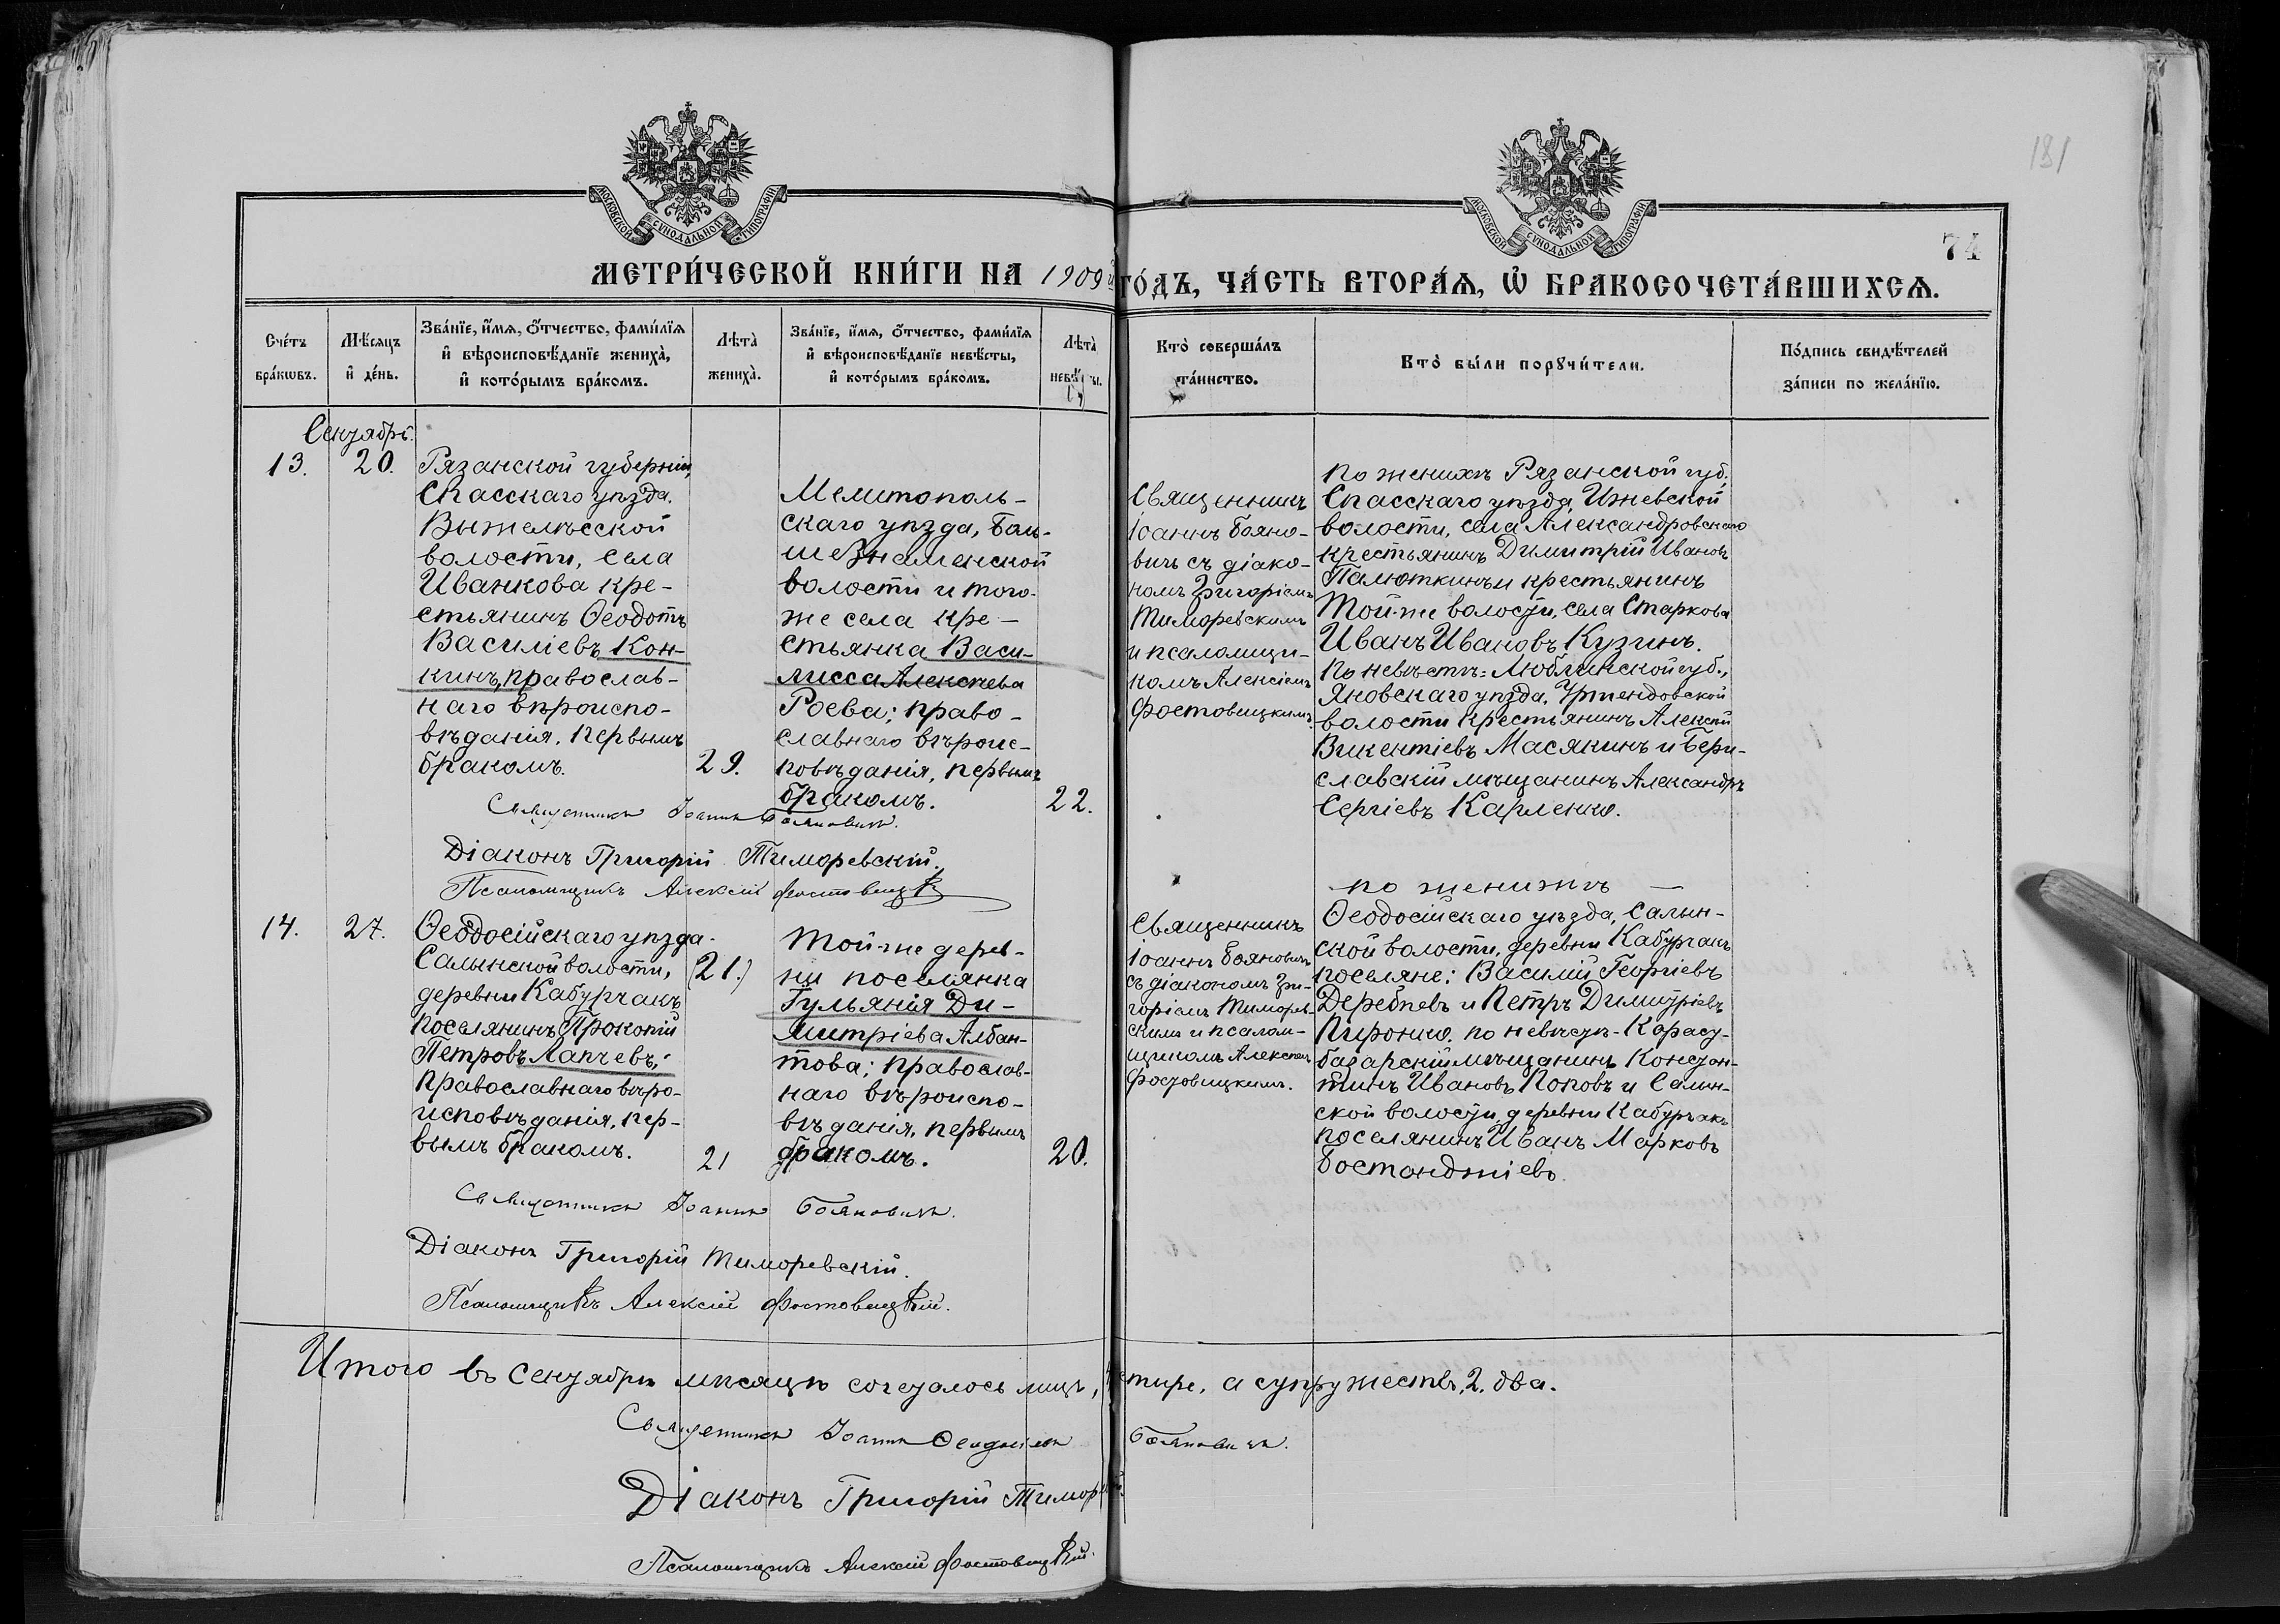 МОСКОВСКОЙ СУНОДАЛЬНОЙ ТИПОГРАФІИ
МОСКОВСКОЙ СУНОДАЛЬНОЙ ТИПОГРАФІИ
181
74
МЕТРИ́ЧЕСКОЙ КНИ́ГИ НА 1909й ГО́ДЪ, ЧА́СТЬ ВТОРА́Ѧ, Ѽ БРАКОСОЧЕТА́ВШИХСѦ.
Сче́тъ бра́кѡвъ.
Мѣ́сѧцъ и҆ де́нь.
Зва́нїе, и҆́мѧ, ѻ҆́тчество, фами́лїѧ
и҆ вѣроисповѣ́данїе жениха̀,
и҆ кото́рымъ бра́комъ.
Лѣта̀ жениха̀.
Зва́нїе, и҆́мѧ, ѻ҆́тчество, фами́лїѧ
и҆ вѣроисповѣ́данїе невѣ́сты,
и҆ кото́рымъ бра́комъ.
Лѣта̀ невѣ́сты.
Кто̀ соверша́лъ
та́инство.
Кто̀ бы́ли порꙋчи́тели.
По́дпись свидѣ́телей
за́писи по жела́нїю.
Сентябрь.
13.
20.
Рязанской губерніи,
Спасскаго уѣзда.
Выжелѣсской
волости, села
Иванкова кре-
стьянинъ Ѳеодотъ
Василіевъ Кон-
кинъ, православ-
наго вѣроиспо-
вѣданія, первымъ
бракомъ.
29.
Мелитополь-
скаго уѣзда, Боль-
ше Знаменской
волости и того-
же села кре-
стьянка Васи-
лисса Алексѣева
Роева; право-
славнаго вѣроис-
повѣданія, первымъ
бракомъ.
22.
Священникъ
Іоаннъ Бояно-
вичъ съ діако-
номъ Григоріемъ
Тиморевскимъ
и псаломщи-
комъ Алексіемъ
Фостовицкимъ.
по женихѣ Рязанской губ.
Спасскаго уѣзда, Ижевской
волости, села Александровскаго
крестьянинъ Димитрій Ивановъ
Палюткинъ и крестьянинъ
Той-же волости, села Старкова
Иванъ Ивановъ Кузинъ.
По невѣстѣ: Люблинской губ.,
Яновскаго уѣзда,
волости крестьянинъ Алексѣй
Викентіевъ Масякинъ и Бери-
славскій мѣщанинъ Александръ
Сергіевъ Карленко.
Священникъ Іоаннъ Бояновичъ.
Діаконъ Григорій Тиморевскій.
Псаломщикъ Алексій Фостовицк
14.
27.
Ѳеодосійскаго уѣзда
Салынской волости,
деревни Кабурчакъ
поселянинъ Прокопій
Петровъ Лапчевъ;
православнаго вѣро-
исповѣданія, пер-
вымъ бракомъ.
(21.)
21
Той-же дерев-
ни поселянка
Гульянія Ди-
митріева Албан-
това; православ-
наго вѣроиспо-
вѣданія, первымъ
бракомъ.
20.
Священникъ
Іоаннъ Бояновичъ
съ діакономъ Гри-
горіемъ Тиморев-
скимъ и псалом-
щикомъ Алексіемъ
Фостовицкимъ.
по женихѣ —
Ѳеодосійскаго уѣзда, Салын-
ской волости, деревни Кабурчакъ
поселяне: Василій Георгіевъ
Деребѣевъ и Петръ Димитріевъ
Пиронко. по невѣстѣ - Карасу-
базарскій мѣщанинъ Констан-
тинъ Ивановъ Поповъ и Салын-
ской волости, деревни Кабурчакъ
поселянинъ Иванъ Марковъ
Бостанджіевъ.
Священникъ Іоаннъ Бояновичъ.
Діаконъ Григорій Тиморевскій.
Псаломщикъ Алексій Фостовицкій.
Итого въ Сентябрѣ мѣсяцѣ сочеталось лицъ, четыре, а супружествъ, 2. два.
Священникъ Іоаннъ Бояновичъ.
Діаконъ Григорій Тимор
Псаломщикъ Алексій Фостовицкій.